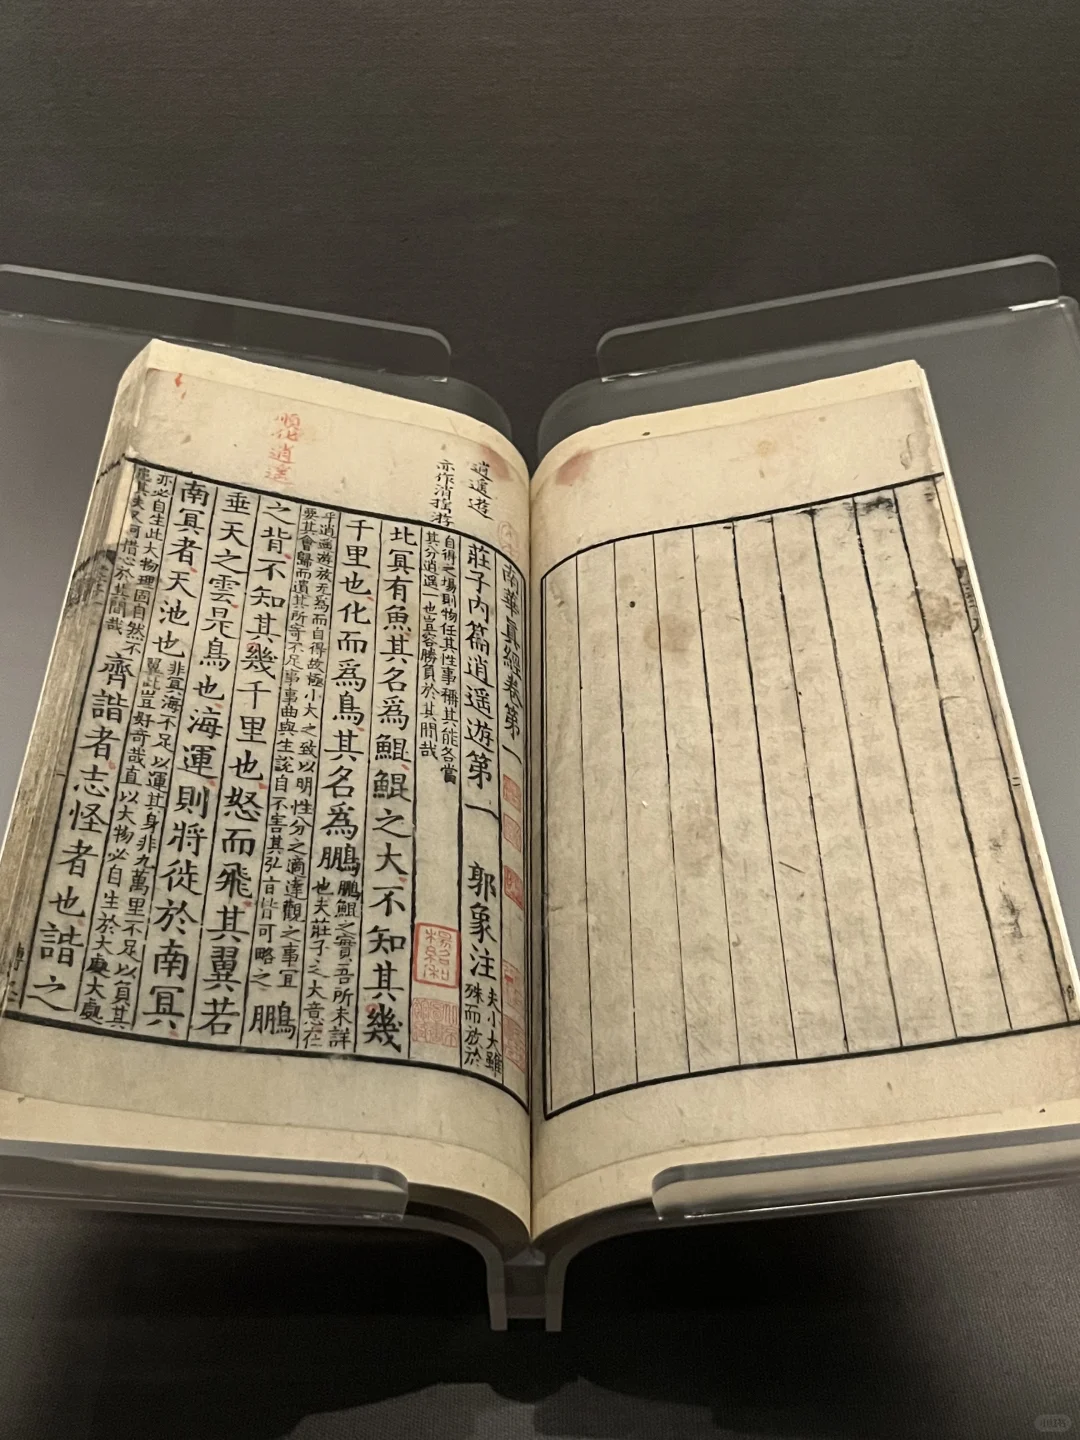 逍遙遊
亦作消揺游
順化逍遥
南華真經卷第一
莊子内篇逍遥遊第一 郭象注 夫小大雖
殊而放於
自得之場則物任其性事稱其能各當
其分逍遥一也豈容勝負於其間哉
北冥有魚其名爲鯤鯤之大不知其幾
千里也化而爲鳥其名爲鵬 鵬鯤之實吾所未詳
也夫莊子之大意在
乎逍遥遊放无爲而自得故極小大之致以明性分之適達觀之事宜
要其會歸而遺其所寄不足事事曲與生説自不害其弘旨皆可略之 鵬
之背不知其幾千里也怒而飛其翼若
垂天之雲是鳥也海運則將徙於南冥
南冥者天池也 非冥海不足以運其身非九萬里不足以負其
翼此豈好奇哉直以大物必自生於大處大處
亦必自生此大物理固自然不
患其失又何措心於其間哉 齊諧者志怪者也諧之